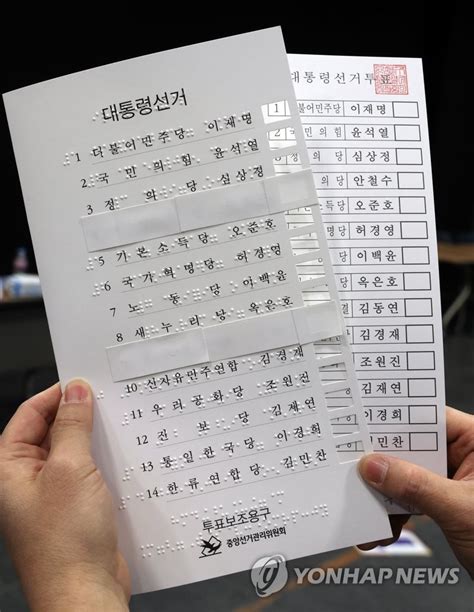 대통령선거
1 더불어민주당 이재명
2 국민의힘 윤석열
3 정의당 심상정
5 기본소득당 오준호
6 국가혁명당 허경영
7 노동당 이백윤
8 새누리당 옥은호
10 신자유민주연합 김경재
11 우리공화당 조원진
12 진보당 김재연
13 통일한국당 이경희
14 한류연합당 김민찬
투표보조용구
중앙선거관리위원회
대통령선거투표
1 더불어민주당 이재명
2 국민의힘 윤석열
정의당 심상정
안철수
오준호
허경영
이백윤
옥은호
김동연
김경재
조원진
김재연
이경희
김민찬
YONHAP NEWS